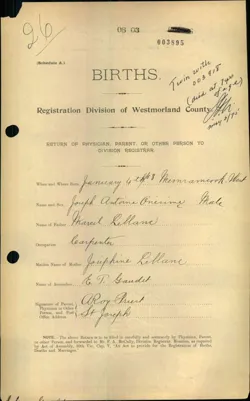 26
03 03
003895
(Schedule A.)
Twin with
003918
(died at 7 yrs
of age)
BIRTHS.
Registration Division of Westmorland County.
RETURN OF PHYSICIAN, PARENT, OR OTHER PERSON TO
DIVISION REGISTRAR.
When and Where Born January 4th Memramcook West
Name and Sex Joseph Antoine Onesime Male
Name of Father Marcel LeBlanc
Occupation Carpenter
Maiden Name of Mother Josephine LeBlanc
Name of Accoucheur E. T. Gaudet
Signature of Parent,
Physician or Other
Person, and Post
Office Address
A Roy Priest
St Joseph
NOTE.—The above Return is to be filled in carefully and minutely by Physician, Parent,
or other Person, and forwarded to Division Registrar, Moncton, as required
by Act of Assembly, Vic. Cap. V. "An Act to provide for the Registration of Births,
Deaths and Marriages."